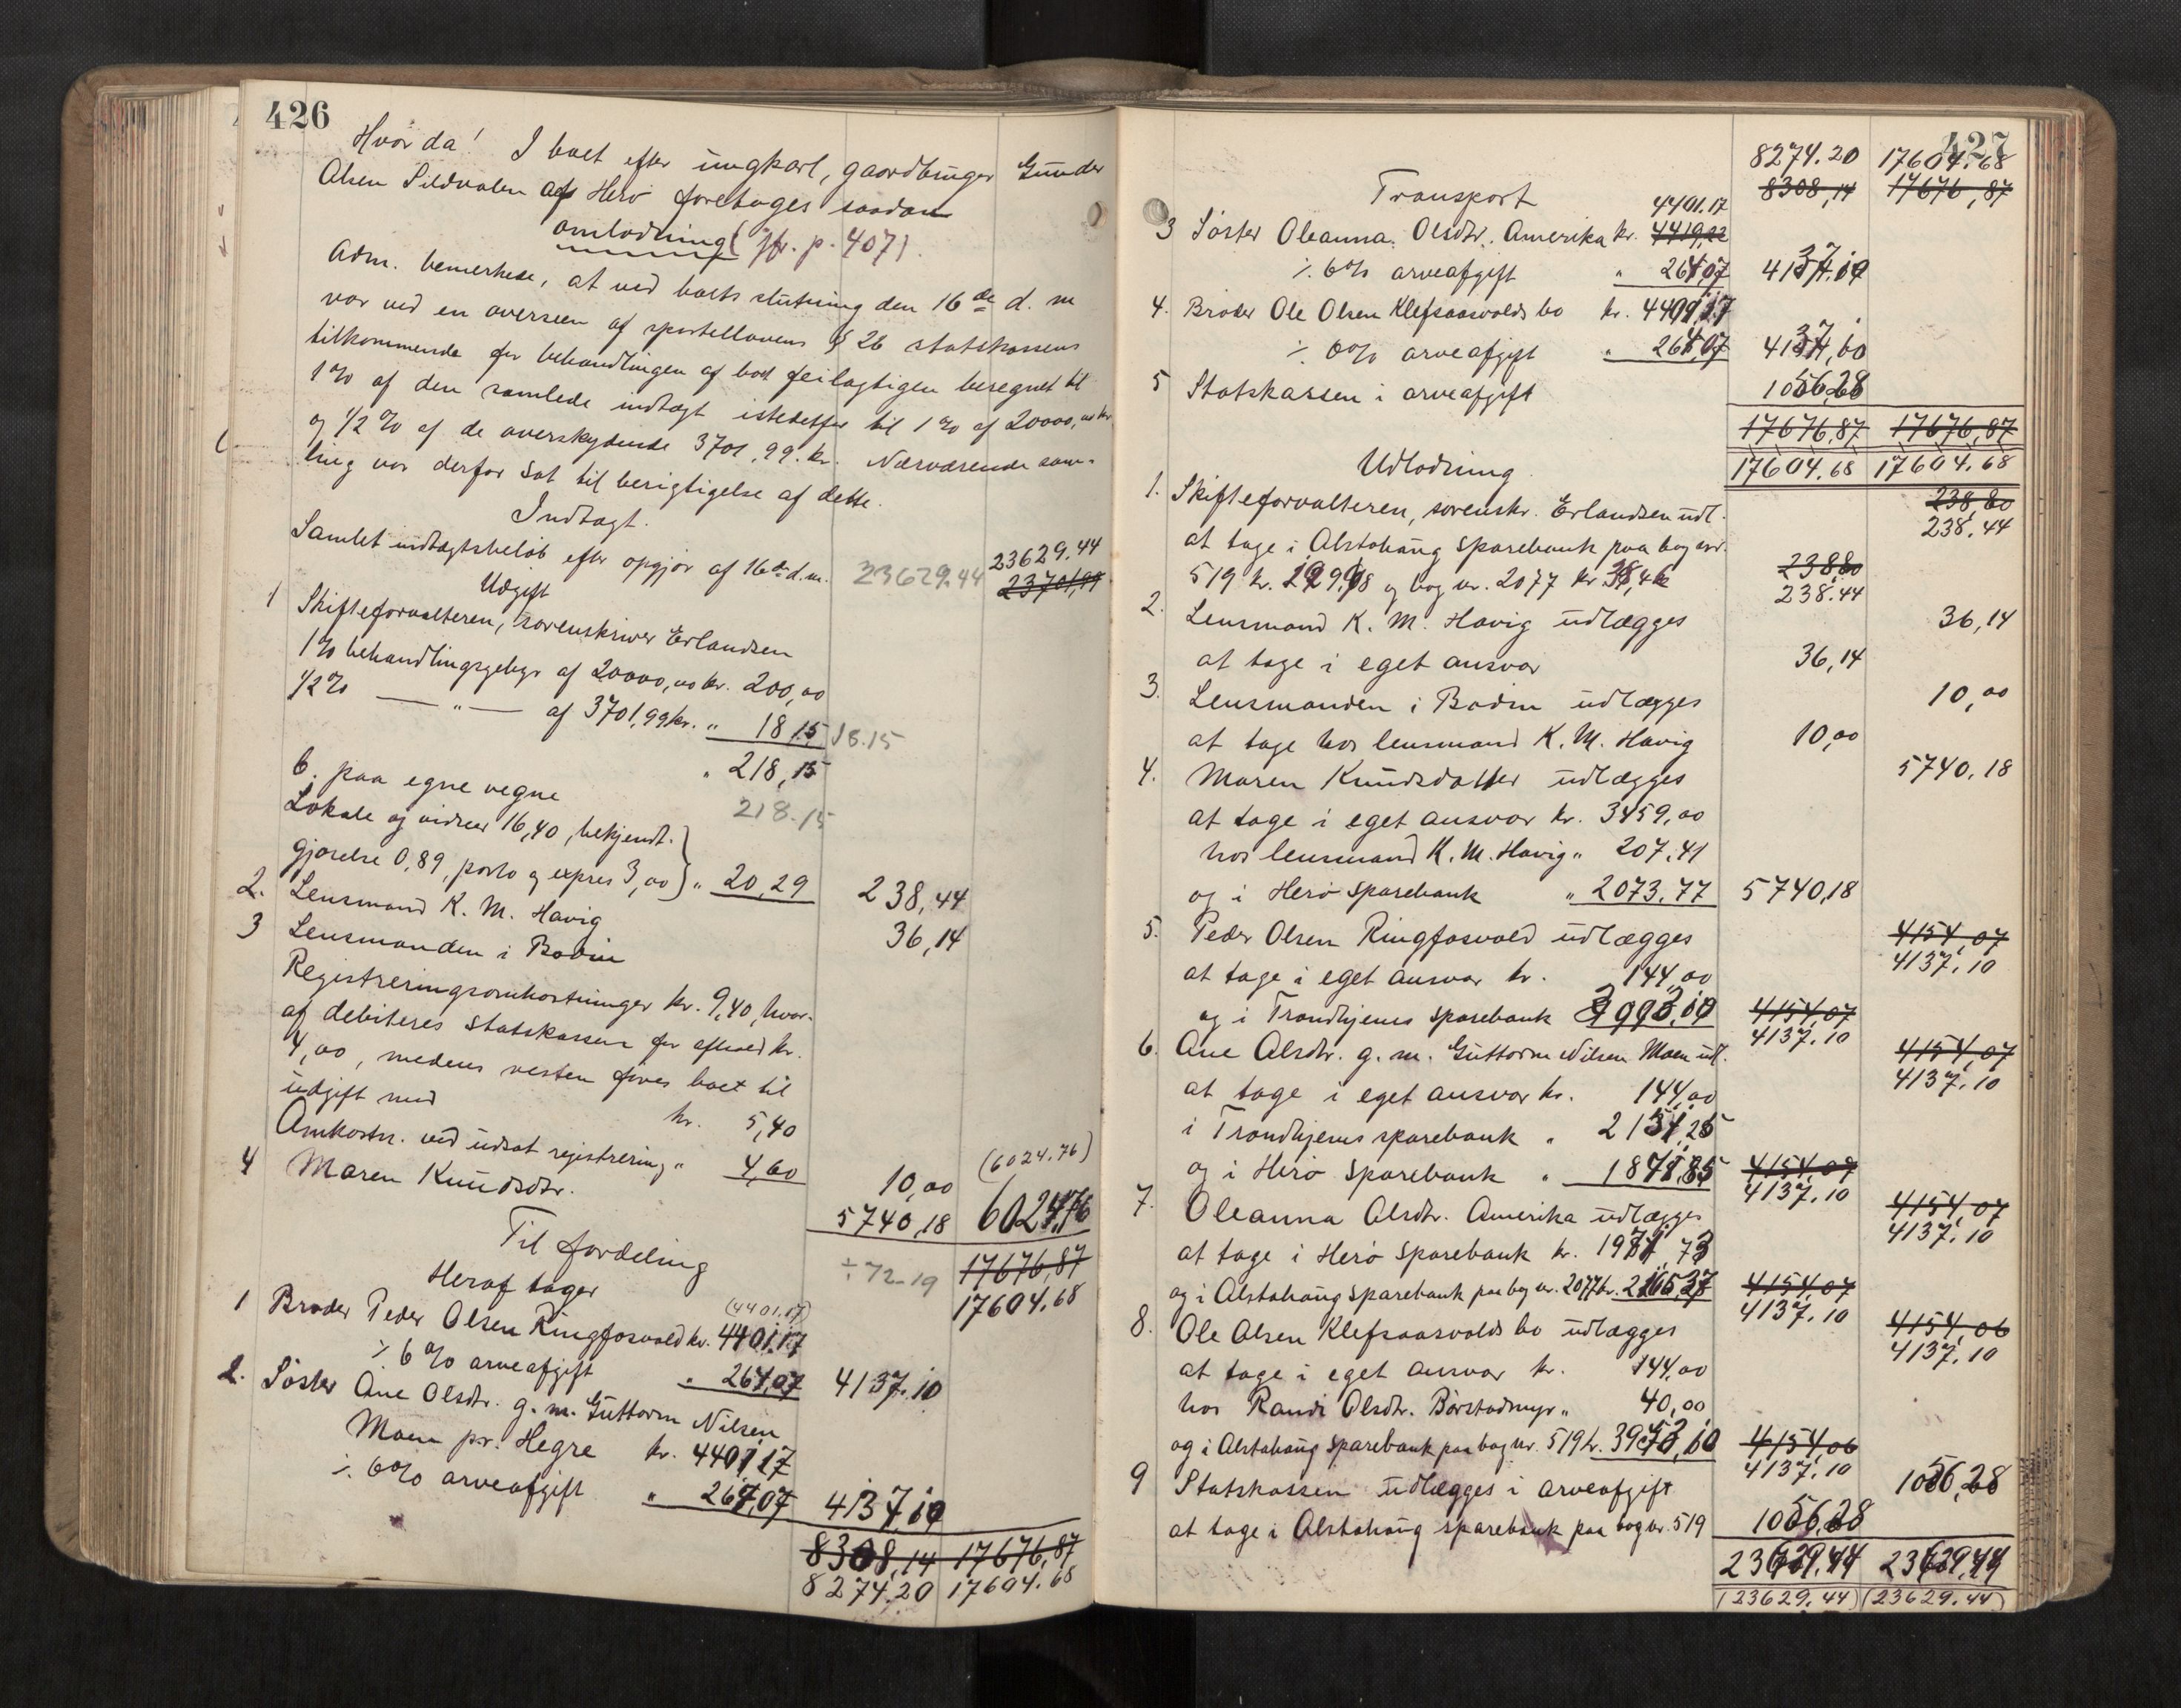 426
Hvor da! I boet efter ungkarl, gaardbruger Gunder
Olsen Sildvalen af Herö foretages saadan
omlodning (Jfr. p. 407).
Adm. bemerkede, at ved boets slutning den 16de d. m
var ved en overseen af sportellovens § 26 statskassens
tilkommende for behandlingen af boet feilagtigen beregnet til
1% af den samlede indtægt istedetfor til 1% af 20000,00 kr.
og 1/2% af de overskydende 3701,99 kr. Nærværende sam-
ling var derfor sat til berigtigelse af dette.
Indtægt.
23629.44
Samlet indtægtsbeløb efter opgjör af 16de d.m. 23629.44 23701,99
Udgift
1 Skifteforvalteren, sorenskriver Erlandsen
1% behandlingsgebyr af 20000,00 kr. 200,00
1/2% — " — af 3701,99 kr. " 18,15 18.15
" 218,15
b. paa egne vegne 218.15
Lokale og vidner 16,40, bekjendt-
gjörelse 0,89, porto og expres 3,00 } " 20,29 238,44
2. Lensmand K. M. Havig 36,14
3 Lensmanden i Bodin
Registreringsomkostninger kr. 9,40, hvor-
af debiteres statskassen for afhold kr.
4,00, medens resten föres boet til
udgift med kr. 5,40
Omkostn. ved udsat registrering " 4,60 10,00 (6024.76)
4 Maren Knudsdtr. 5740,18 6024,76
Til fordeling ÷72.19 17676,87
Heraf tager 17604.68
(4401.17)
1 Broder Peder Olsen Ringfosvold kr. 4401.17
÷ 6% arveafgift " 264,07 4137.10
2. Söster Ane Olsdtr. g. m. Guttorm Nilsen
Moen pr. Hegre kr. 4401,17
÷ 6% arveafgift " 264,07 4137,10
8308,14 17676,87
8274.20 17604.68
427
8274.20 17604.68
Transport 8308,14 17676,87
4401.17
3 Söster Oleanna Olsdtr. Amerika kr. 4419,22
÷ 6% arveafgift " 264,07 4137,10
4. Broder Ole Olsen Klefsaasvolds bo kr. 4401,17
÷ 6% arveafgift " 264,07 4137,10
5 Statskassen i arveafgift 1056,28
17676,87 17676,87
17604.68 17604.68
Udlodning
1. Skifteforvalteren, sorenskr. Erlandsen udl. 238,80
238,44
at tage i Alstahaug sparebank paa bog nr.
519 kr. og bog nr. 2077 kr 238,80
238.44
2. Lensmand K. M. Havig udlægges 36,14
at tage i eget ansvar 36,14
3. Lensmanden i Bodin udlægges 10,00
at tage hos lensmand K. M. Havig 10,00
4. Maren Knudsdatter udlægges 5740,18
at tage i eget ansvar kr. 3459,00
hos lensmand K. M. Havig " 207.41
og i Herö sparebank " 2073.77 5740,18
5. Peder Olsen Ringfosvold udlægges 4154,07
4137,10
at tage i eget ansvar kr. 144,00
og i Trondhjems sparebank 3993,10 4154,07
4137.10
6. Ane Olsdtr. g. m. Guttorm Nilsen Moen udl. 4154,07
4137.10
at tage i eget ansvar kr. 144,00
i Trondhjems sparebank "
og i Herö sparebank " 4154,07
4137.10
7. Oleanna Olsdtr. Amerika udlægges 4154,07
4137.10
at tage i Herö sparebank kr.
og i Alstahaug sparebank paa bog nr. 2077 kr. 4154,07
4137.10
8. Ole Olsen Klefsaasvolds bo udlægges 4154,06
4137.10
at tage i eget ansvar kr. 144,00
hos Randi Olsdtr. Börstadmyr " 40,00
og i Alstahaug sparebank paa bog nr. 519 kr. 3953,10 4154,06
4137.10
9 Statskassen udlægges i arveafgift 1056,28
at tage i Alstahaug sparebank paa bog nr. 519 1056,28
23629,44 23629,44
(23629.44) (23629.44)